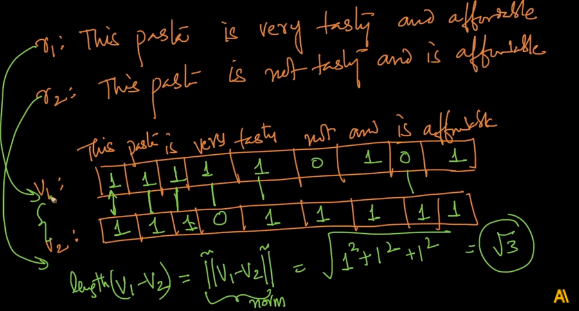 r₁: This pasta is very tasty and affordable
r₂: This pasta is not tasty and is affordable
This pasta is very tasty not and is affordable
V₁: 1 1 1 1 1 0 1 0 1
V₂: 1 1 1 0 1 1 1 1 1
length(V₁-V₂) = ||V₁-V₂|| = √1²+1²+1² = √3
norm